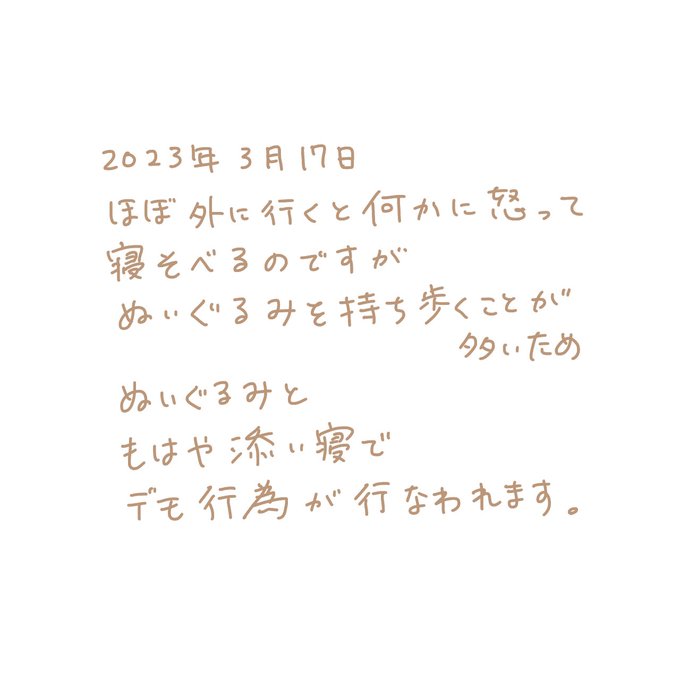 2023年 3月17日
ほぼ外に行くと何かに怒って
寝そべるのですが
ぬいぐるみを持ち歩くことが
多いため
ぬいぐるみと
もはや添い寝で
デモ行為が行なわれます。